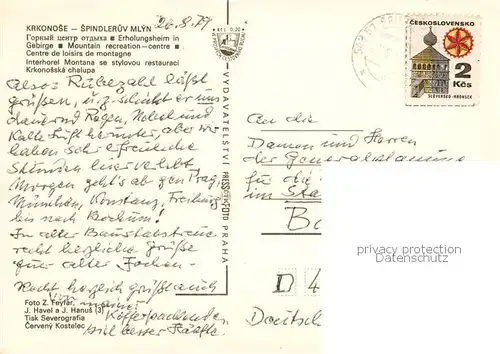 KRKONOŠE – ŠPINDLERŮV MLÝN
26.8.79
Горный центр отдыха ● Erholungsheim in
Gebirge ● Mountain recreation-centre ●
Centre de loisirs de montagne
Interhorel Montana se stylovou restaurací
Krkonošská chalupa
Also: Rübezahl läßt
grüßen, u.z. schickt er uns
dauernd Regen, Nebel und
kalte Luft herunter, aber wir
haben sehr erfreuliche
Stunden hier verlebt.
Morgen geht's ab gen Prag,
München, Konstanz, Freiburg
bis nach Bochum!
In alter
recht herzliche Grüße
Ihr alter Jochen -
Recht herzlich grüßt auch
von
Kofferpackenden
Hälfte.
Foto Z. Feyfar,
J. Havel a J. Hanuš (3)
Tisk Severografia
Červený Kostelec
VYDAVATELSTVÍ PRESSFOTO PRAHA
ČESKOSLOVENSKO
2
Kčs
SLOVENSKO - HRONSEK
An die
Damen und Herren
der
für die
im Sta
Bo
D 4
Deutschl
privacy protection
watermark